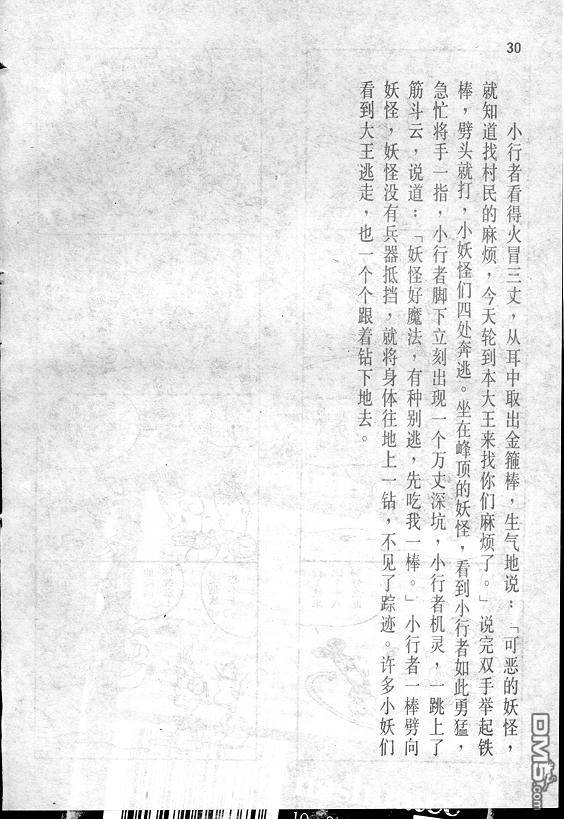 30
小行者看得火冒三丈，从耳中取出金箍棒，生气地说：「可恶的妖怪，
就知道找村民的麻烦，今天轮到本大王来找你们麻烦了。」说完双手举起铁
棒，劈头就打，小妖怪们四处奔逃。坐在峰顶的妖怪，看到小行者如此勇猛，
急忙将手一指，小行者脚下立刻出现一个万丈深坑，小行者机灵，一跳上了
筋斗云，说道：「妖怪好魔法，有种别逃，先吃我一棒。」小行者一棒劈向
妖怪，妖怪没有兵器抵挡，就将身体往地上一钻，不见了踪迹。许多小妖们
看到大王逃走，也一个个跟着钻下地去。
DM5.com